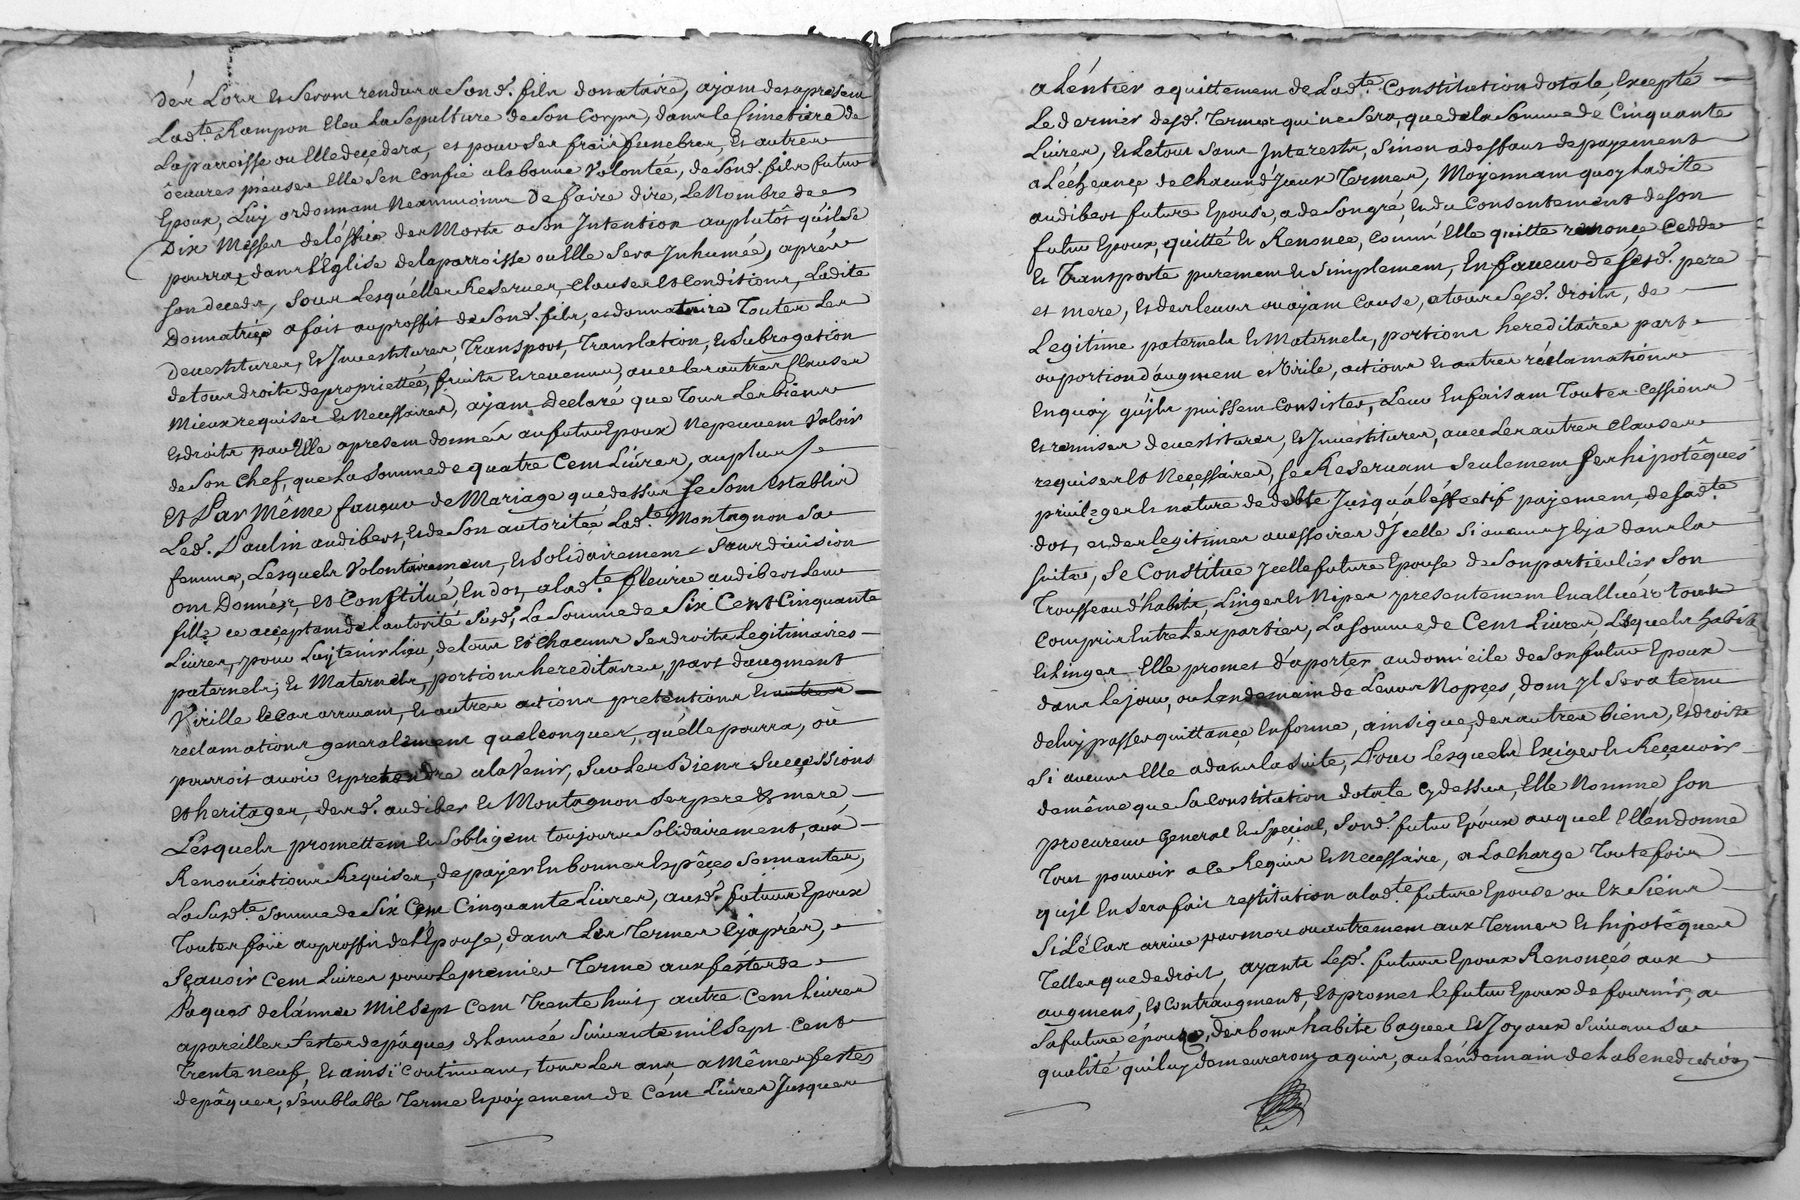 des Lors et seront rendus a Sond. fils donataire, ajant des apresent
Lad.te Rampon Eleu La Sepulture de Son Corps, dans le Simetiere de
La parroisse ou Elle decedera, et pour Ses fraix funebres, et autres
oeuures pieuses Elle Sen Confie a la bonne Volontée, de Sond. fils futur
Epoux, Luy ordonnant Neanmoins De faire dire, Le Nombre de
Dix Messes de lóffice des Morts a Son Intention au plutôt quil Se
pourra, dans l'Eglise de la parroisse ou Elle Sera Inhumée, aprés
Son Deceds, Sous Lesquélles Reserues, Clauses et Conditions, Ladite
Donnatrice a fait au proffit de Sond. fils, et donnataire Toutes Les
Deuestitures, et Inuestitures, Transport, Translation, et Subrogation
de tous droits de propriettée, fruits et reuenus, auec les autres Clauses
Mieux requises et Necessaires, ajant Declaré que Tous Les biens
et droits par Elle apresent donnés au futur Epoux Ne peuuent Valoir
de Son Chef, que La Somme de quatre Cent Liures, au plus
Et Par Même faueur de Mariage que dessus Se Sont Establis
Led. Paulin audibert, et de Son autoritée Lad.te Montagnon Sa
femme, Lesquels Volontairement, et Solidairement Sans diuision
ont Donnés, et Constitué, En dot, a lad.te fleurie audibert Leur
fille ce acceptant de l'autorité Susd, La Somme de Six Cent Cinquante
Liures, pour Luy tenir Lieu, de tous et Chacuns Ses droits Legitimaires
paternels, et Maternels, portions hereditaires, part d'augment
Virille le Cas arriuant, et autres actions pretentions et autres
reclamations generalement quelconques, qu'élle pourra, où
pourroit auoir et pretendre a la Venir, Sur Les Biens Successions
et heritages, desd. audibert et Montagnon Ses pere et mere
Lesquels promettent et S'obligent toujours Solidairement, aux
Renonciations Requises, de payer En bonnes Espêces Sonnantes,
La Susd.te Somme de Six Cent Cinquante Liures, ausd. futurs Epoux
Toutes fois au proffit de l'Epouse, dans Les Termes Cy aprés,
Sçauoir Cent Liures pour Le premier Terme aux féstes de
Paques de l'année Mil Sept Cent Trente huit, autre Cent Liures
a pareilles festes de pâques de l'année Suiuante mil Sept Cent
Trente neuf, et ainsi Continuant, tous Les ans, a Mêmes festes
de pâques, Semblable Terme et payement de Cént Liures Jusques
a L'éntier aquittement de Lad.te Constitution dotale, Excepté
Le dernier desd. Termes qui ne Sera, que de la Somme de Cinquante
Liures, et Le tout Sans Interests, Sinon a deffaut de payement
a L'échéance de Chacun d'Jceux Termes, Moyennant quoy Ladite
audibert future Epouse, a de Son gré, et du Consentement de Son
futur Epoux, quitté et Renoncé, Comm'Elle quitte renonce Cedde
et Transporte purement et Simplement, En faueur de Sesd. pere
et mere, et des leurs ou ajant Cause, a tous Sesd. droits, de
Legitime paternels et Maternels, portions hereditaires part
ou portion d'augment et Virile, actions et autres réclamations
En quoy qu'jls puissent Consister, Leur En faisant Toutes Cessions
et remises deuestitures, et Inuestitures, auec Les autres Clauses
requises et Necessaires, Se Reseruant Seulement Ses hipotêques
priuileges et nature de debte Jusqu'a l'éffectif payement, de Sad.te
dot, et des legitimes accessoires d'Jcelle Si aucuns y Eja dans la
Suite, Se Constitue Jcelle future Epouse de Son particulier Son
Trousseau d'habits, Linges et Nipes presentement Eualluéz tous
Compris Entre Les parties, La Somme de Cent Liures, Lesquels habits
et Linges Elle promet d'aporter, au domicile de Son futur Epoux
dans Le jour, ou Landemain de Leurs Nopçes, dont Jl Sera tenu
de luy passer quittançe En forme, ainsi que, des autres biens, et droits
Si aucuns Elle a dans la Suite, Pour Lesquels Exiger et Reçeuoir
de même que Sa Constitution dotale Cy dessus, Elle Nomme Son
procureur General et Spécial, Sond. futur Epoux auquel Elle en donne
Tous pouuoir a Ce Requis et Necessaire, a La Charge Toute fois
qu'jl En Sera fait restitution a lad.te future Epouse ou Ez Siéns
Si Le Cas arriue par mort ou autrement aux Termes et hipotêques
Telles que de droit, ayants Lesd. futurs Epoux Renoncés aux
augment, et Contraugment, et promet Le futur Epoux de fournir, a
Sa future épouse, des bons habits bagues et Joyaux Suiuant Sa
qualité qui luy demeureront aquis, au Lendemain de La benediction